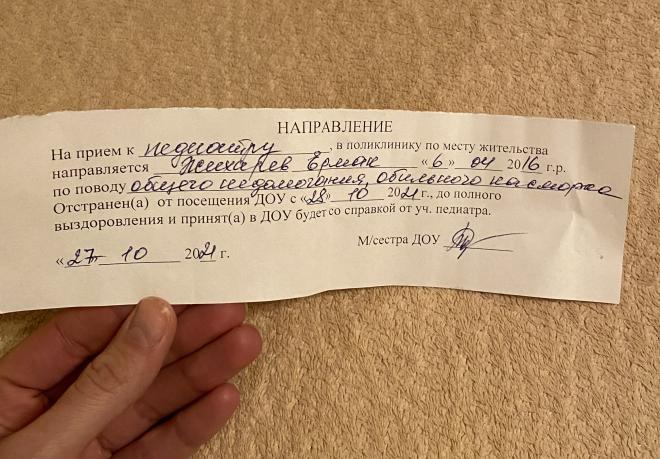 НАПРАВЛЕНИЕ
На прием к педиатру, в поликлинику по месту жительства
направляется Жихарев Ермак «6» 04 2016 г.р.
по поводу общего недомогания, обильного насморка
Отстранен(а) от посещения ДОУ с «28» 10 2021 г., до полного
выздоровления и принят(а) в ДОУ будет со справкой от уч. педиатра.
«27» 10 2021 г.
М/сестра ДОУ